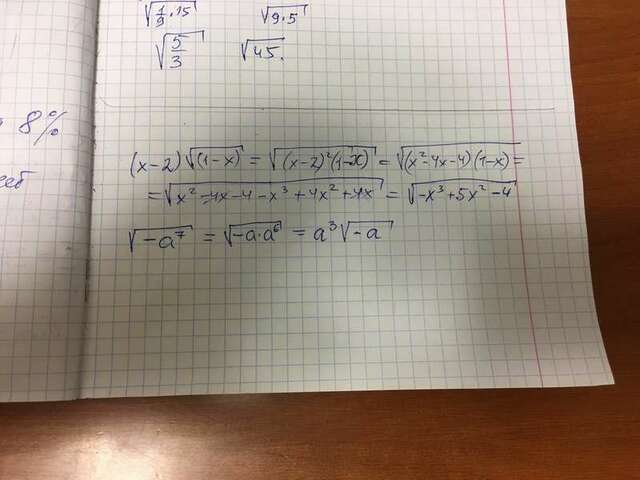 √(1/9 · 15) √(9·5)
√(5/3) √45.
8%
(x−2)√((1−x)) = √((x−2)²(1−x)) = √((x²−4x−4)(1−x)) =
= √(x²−4x−4−x³+4x²+4x) = √(−x³+5x²−4)
√(−a⁷) = √(−a·a⁶) = a³√(−a)